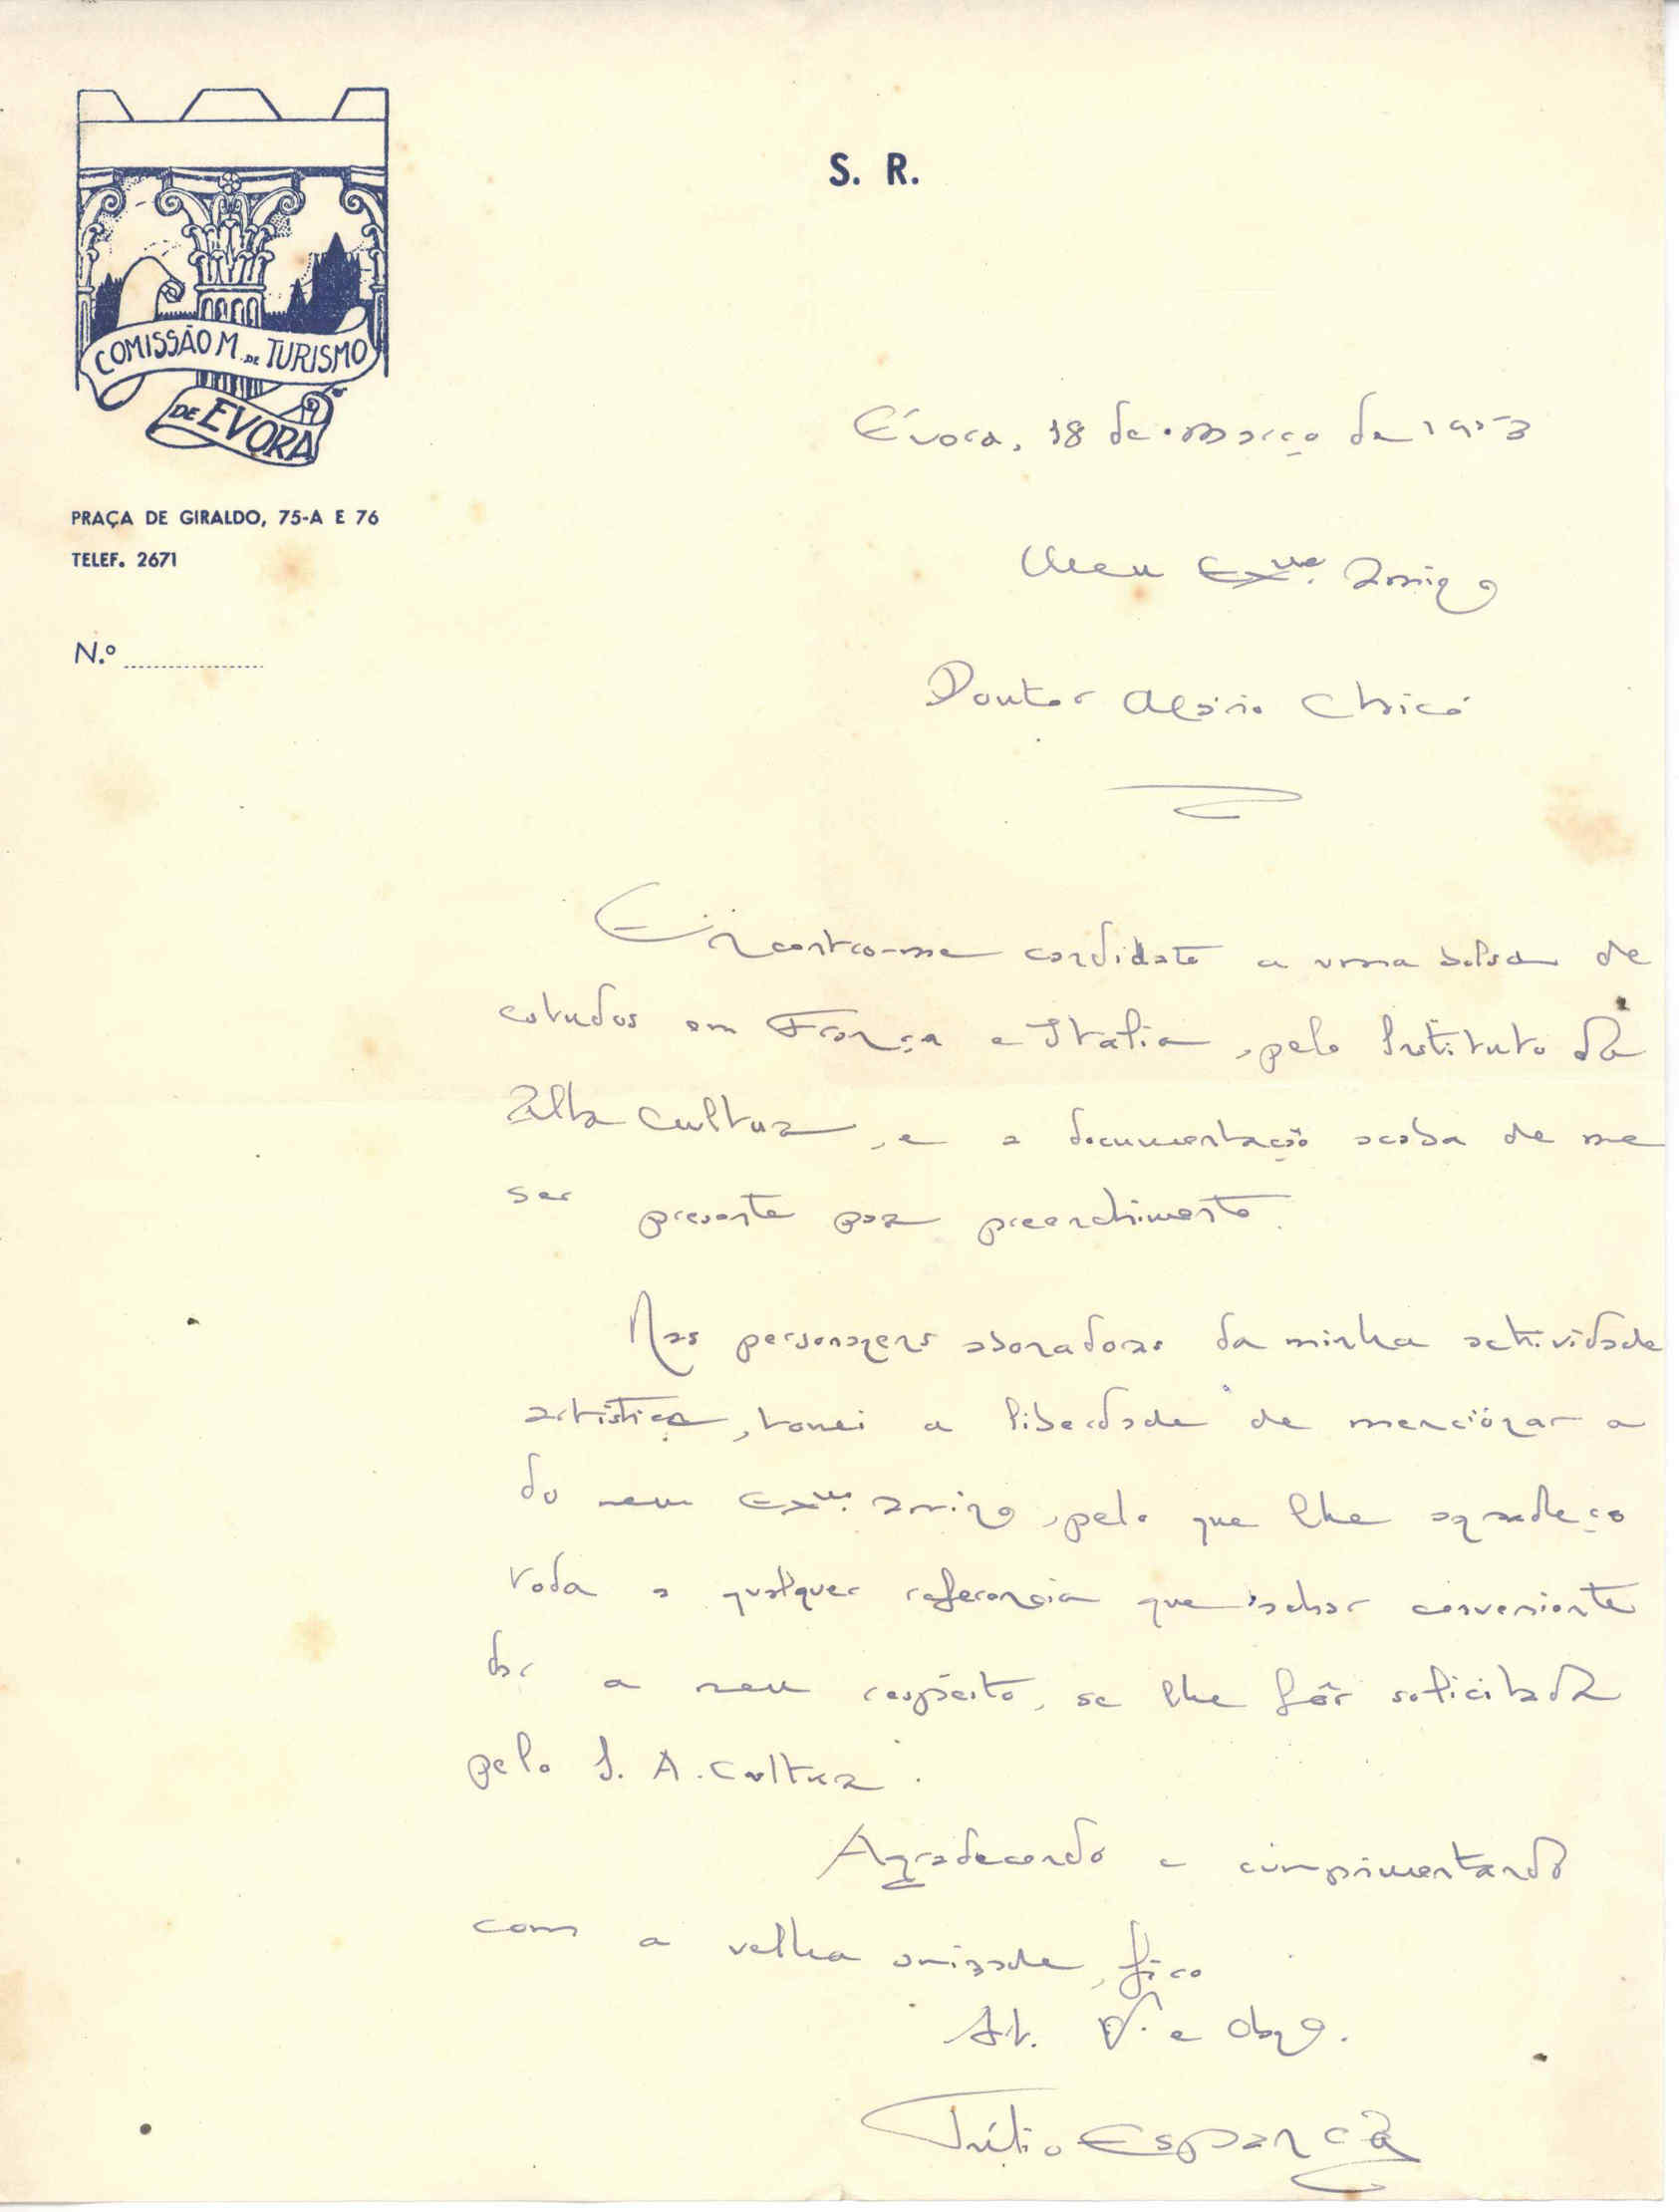 S. R.
COMISSÃO M. DE TURISMO
DE EVORA
PRAÇA DE GIRALDO, 75-A E 76
TELEF. 2671
N.º
Évora, 18 de Março de 1953
Meu Exmo. Amigo
Doutor Mário Chicó
Encontro-me candidato a uma bolsa de
estudos em França e Itália, pelo Instituto da
Alta Cultura, e a documentação acaba de me
ser presente para preenchimento.
Nas personagens abonadoras da minha actividade
artística, tomei a liberdade de mencionar a
do meu Exmo. amigo, pelo que lhe agradeço
toda e qualquer referência que achar conveniente
dar a meu respeito, se lhe fôr solicitada
pelo I. A. Cultura.
Agradecendo e cumprimentando
com a velha amizade, fico
At. V. e Obgo.
Túlio Espanca